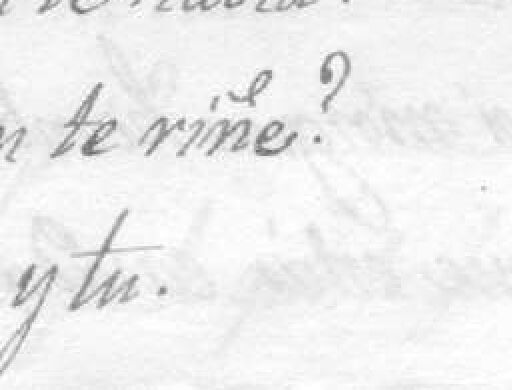 te riñe?
y tu.